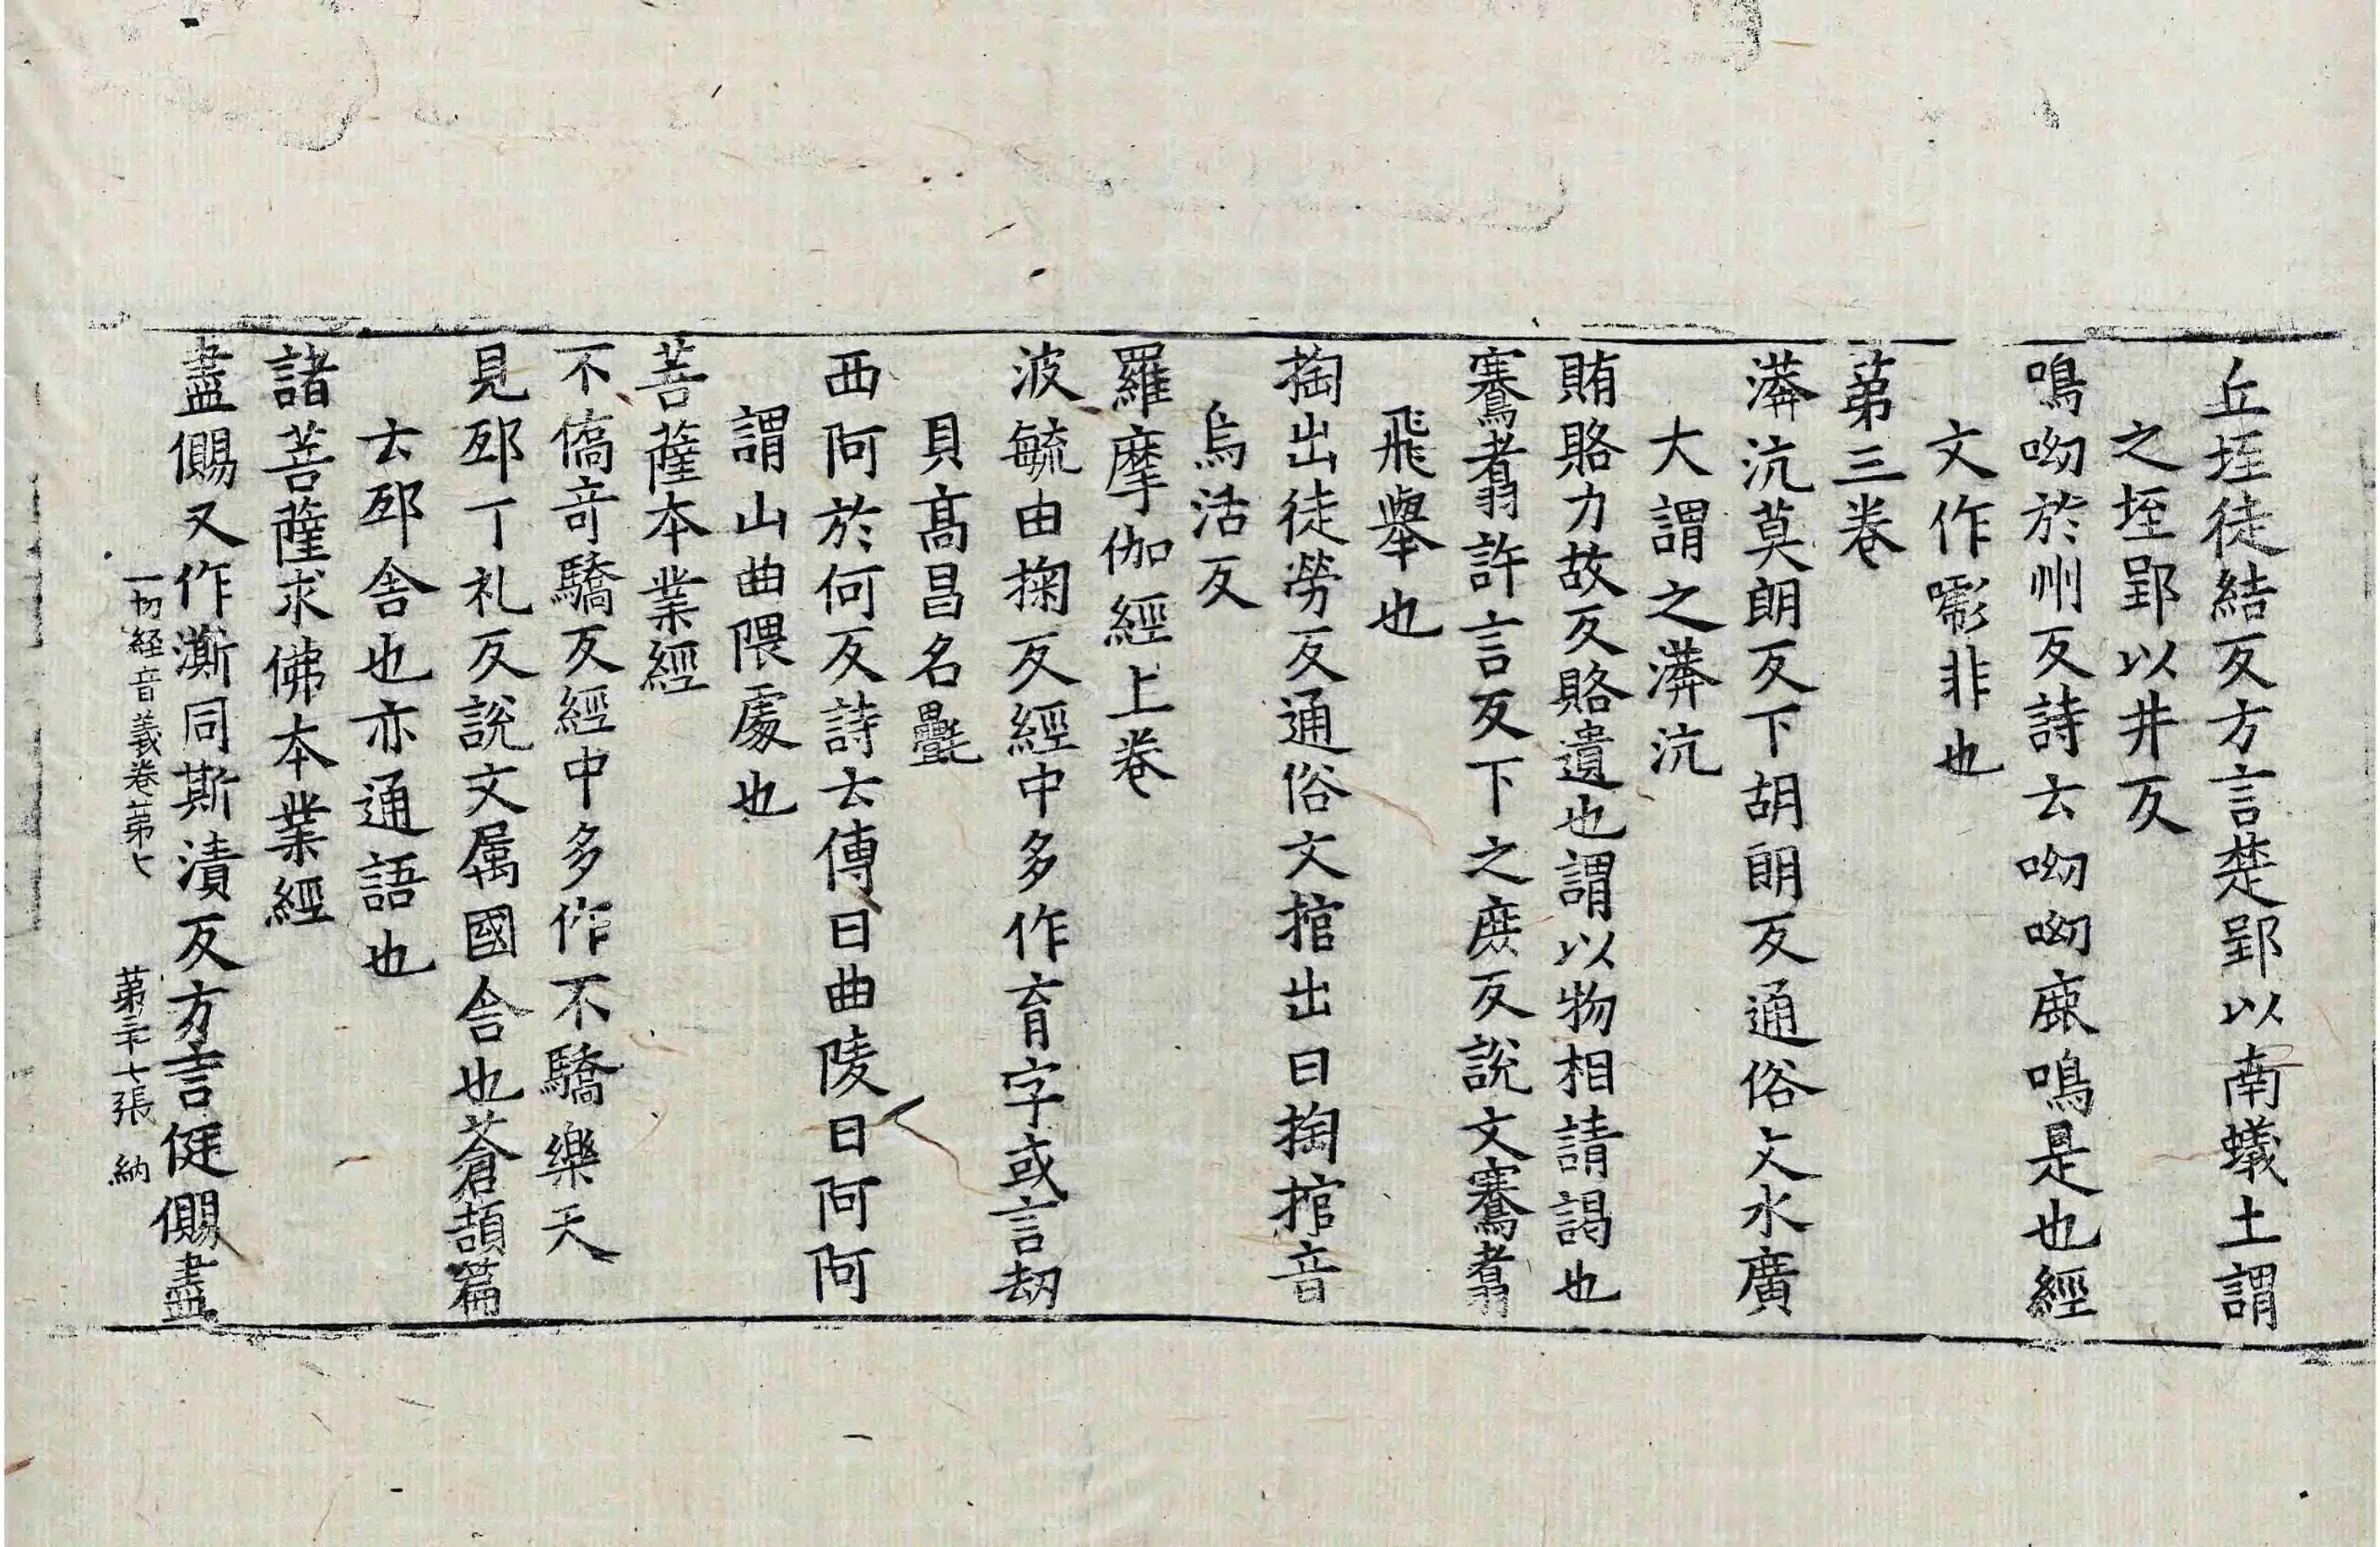 丘垤徒結反方言楚郢以南蟻土謂
之垤郢以井反
鳴呦於州反詩云呦呦鹿鳴是也經
文作嚈非也
第三卷
漭沆莫朗反下胡朗反通俗文水廣
大謂之漭沆
賄賂力故反賂遺也謂以物相請謁也
騫翥許言反下之庶反說文騫翥
飛舉也
掏出徒勞反通俗文捾出曰掏捾音
烏活反
羅摩伽經上卷
波毓由掬反經中多作育字或言劫
貝高昌名㲲
西阿於何反詩云傳曰曲陵曰阿阿
謂山曲隈處也
菩薩本業經
不僑奇驕反經中多作不驕樂天
見邸丁礼反說文属國舍也蒼頡篇
云邸舍也亦通語也
諸菩薩求佛本業經
盡儩又作澌同斯漬反方言侹儩盡
一切経音義卷第七 第二十七張 納